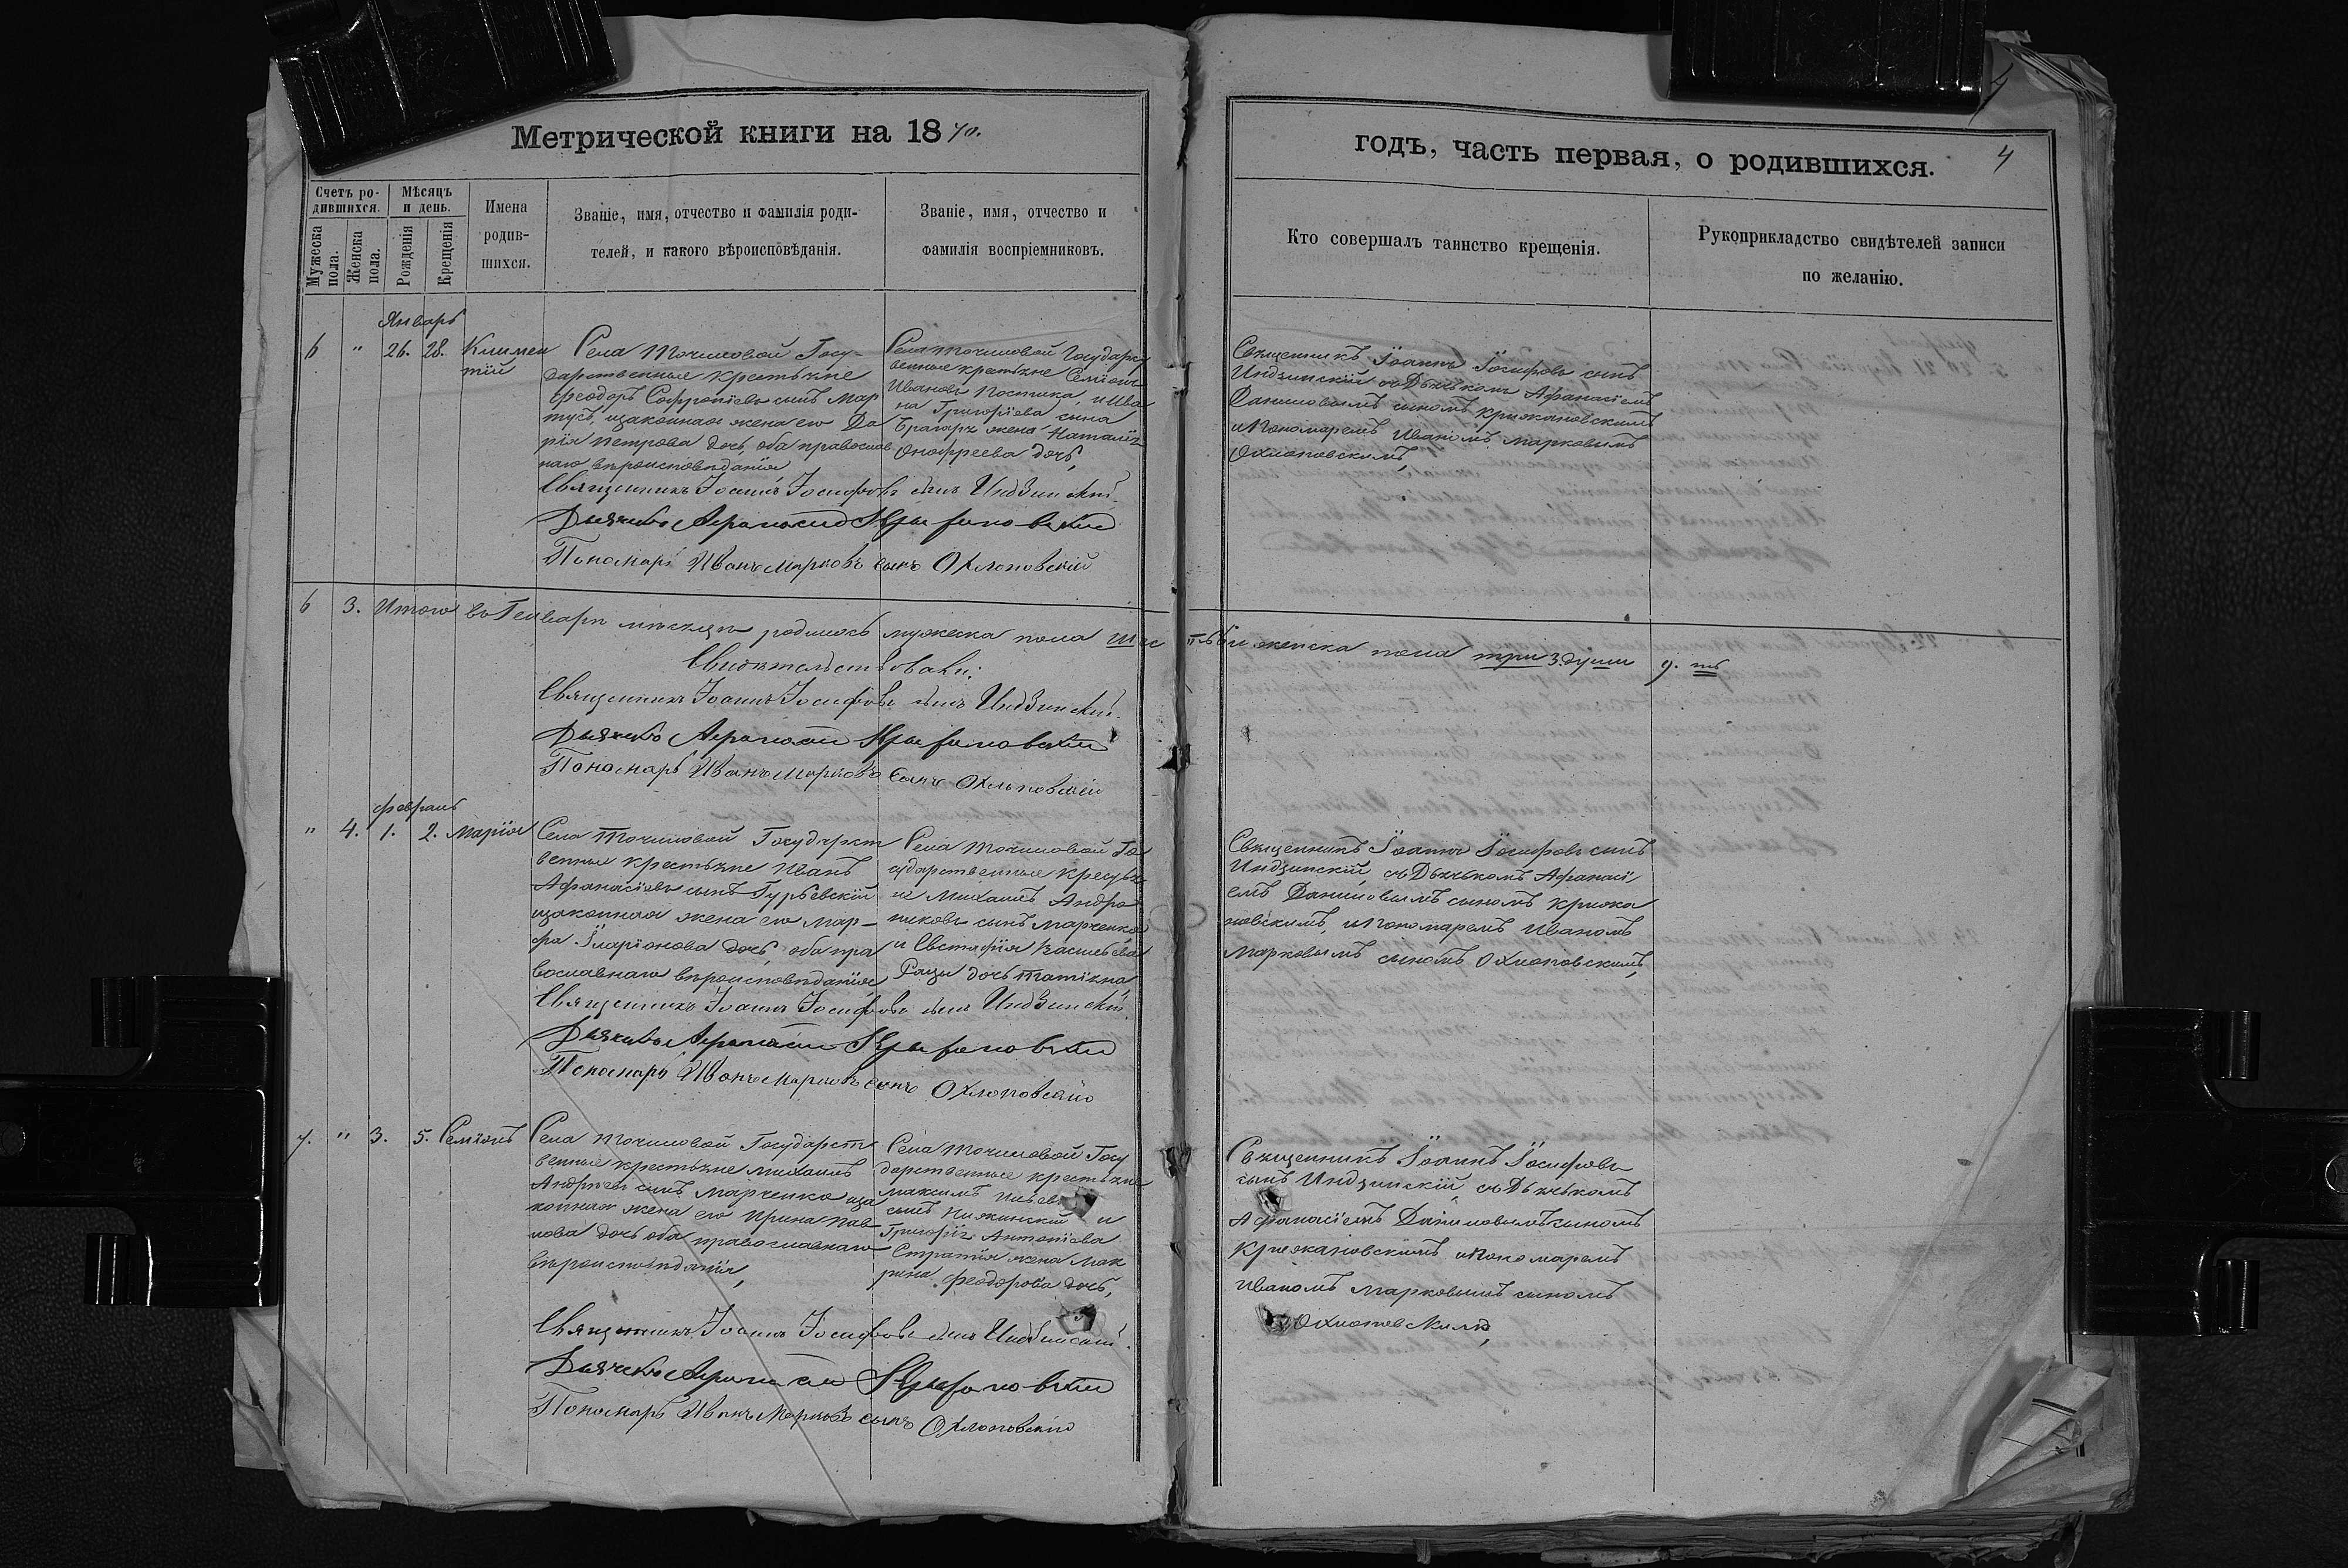 Метрической книги на 1870.
годъ, часть первая, о родившихся.
4
Счетъ родившихся.
Мужеска пола.
Женска пола.
Мѣсяцъ и день.
Рожденія
Крещенія
Имена родив-
шихся.
Званіе, имя, отчество и фамилія роди-
телей, и какого вѣроисповѣданія.
Званіе, имя, отчество и
фамилія воспріемниковъ.
Кто совершалъ таинство крещенія.
Рукоприкладство свидѣтелей записи
по желанію.
Январь
6 " 26. 28. Климен
тій
Села Точиловой Госу-
дарственные крестьяне
Ѳеодоръ Софроніевъ сынъ Мар
тусъ, и законная жена его Да
рія Петрова дочь, оба православ
наго вѣроисповѣданія
Села Точиловой Государст
венные крестьяне Семіонъ
Ивановъ Постика, и Ива
на Григоріева сына
Брагаръ жена Наталія
Онофреева дочь,
Священникъ Іоаннъ Іосифовъ сынъ
Индзинскій съ Дьячкомъ Афанасіемъ
Даниловымъ сыномъ Крижановскимъ
и Пономаремъ Иваномъ Марковымъ
Охлоповскимъ,
Священникъ Іоаннъ Іосифовъ сынъ Индзинскій.
Дьячекъ Афанасій Крижановскій
Пономарь Иванъ Марковъ сынъ Охлоповскій
6 3. Итого въ Генварѣ мѣсяцѣ родилось мужеска пола шес ть 6 и женска пола три 3. душъ 9. ть
Свидѣтельствовали:
Священникъ Іоаннъ Іосифовъ сынъ Индзинскій.
Дьячекъ Афанасій Крижановскій
Пономарь Иванъ Марковъ сынъ Охлоповскій
Февраль
" 4. 1. 2. Марія
Села Точиловой Государст
венные крестьяне Иванъ
Афанасіевъ сынъ Гурьевскій
и законная жена его Мар-
фа Іларіонова дочь, оба пра
вославнаго вѣроисповѣданія
Села Точиловой Го
сударственные кресья
не Михаилъ Андро
никовъ сынъ Марченко
и Евстафія Васильева
Рацы дочь Татіяна
Священникъ Іоаннъ Іосифовъ сынъ
Индзинскій съ Дьячькомъ Афанасі
емъ Даниловымъ сыномъ Крижа
новскимъ, и Пономаремъ Иваномъ
Марковымъ сыномъ Охлоповскимъ,
Священникъ Іоаннъ Іосифовъ сынъ Индзинскій.
Дьячекъ Афанасій Крижановскій
Пономарь Иванъ Марковъ сынъ Охлоповскій
7. " 3. 5. Семіонъ
Села Точиловой Государст
венные крестьяне Михаилъ
Андріевъ сынъ Марченко и за
конная жена его Ирина Пав
лова дочь оба православнаго
вѣроисповѣданія,
Села Точиловой Госу
дарственные крестьяне
Максимъ
сынъ Нижинскій и
Григорія Антоніева
Стратія жена Мак
рина Ѳеодорова дочь,
Священникъ Іоаннъ Іосифовъ
сынъ Индзинскій съ Дьячькомъ
Афанасіемъ Даниловымъ сыномъ
Крижановскимъ и Пономаремъ
Иваномъ Марковымъ сыномъ
Охлоповскимъ,
Священникъ Іоаннъ Іосифовъ сынъ Индзинскій.
Дьячекъ Афанасій Крижановскій
Пономарь Иванъ Марковъ сынъ Охлоповскій